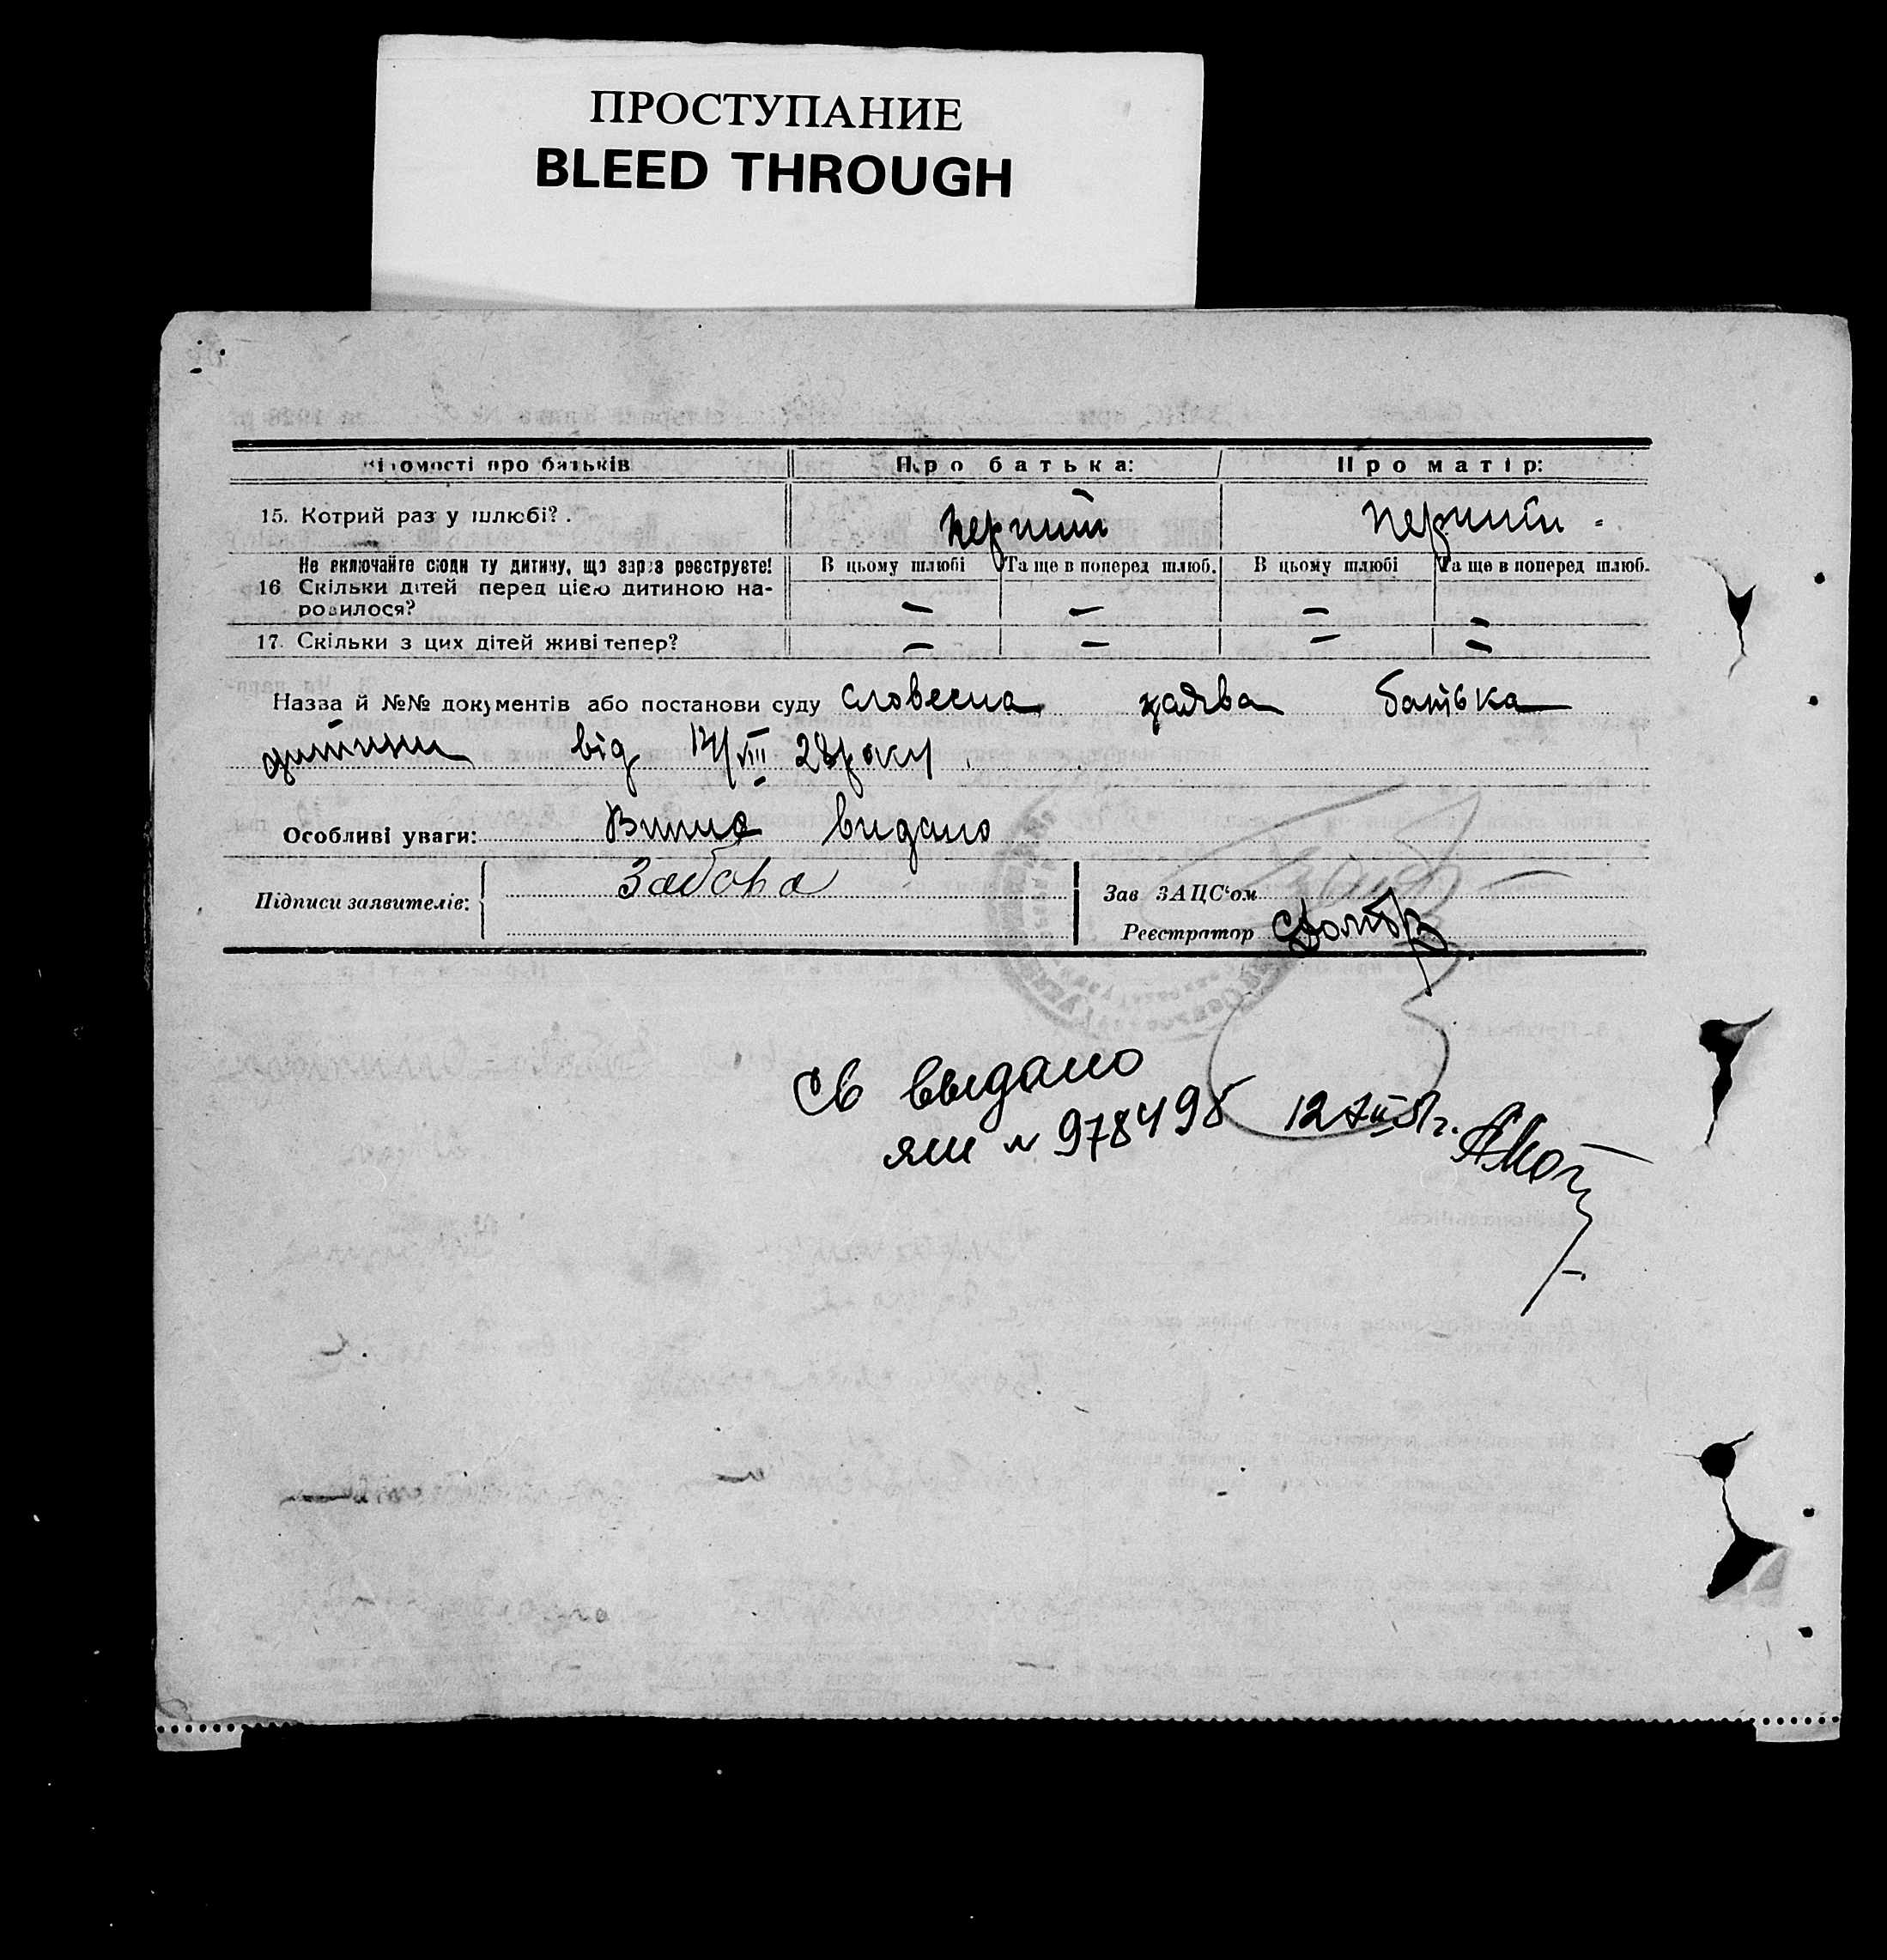 ПРОСТУПАНИЕ
BLEED THROUGH
відомості про батьків Про батька: Про матір:
15. Котрий раз у шлюбі? . перший перший -
Не включайте сюди ту дитину, що зараз реєструєте! В цьому шлюбі Та ще в поперед шлюб. В цьому шлюбі Та ще в поперед шлюб.
16 Скільки дітей перед цією дитиною на-
родилося? — — — —
17. Скільки з цих дітей живі тепер? — — — —
Назва й №№ документів або постанови суду словесна заява батька
дитини від 14/VIII 28 року
Особливі уваги: Випис видано
Підписи заявителів: Забока
Зав ЗАЦС'ом
Реєстратор
Св выдано
яш № 978498 12